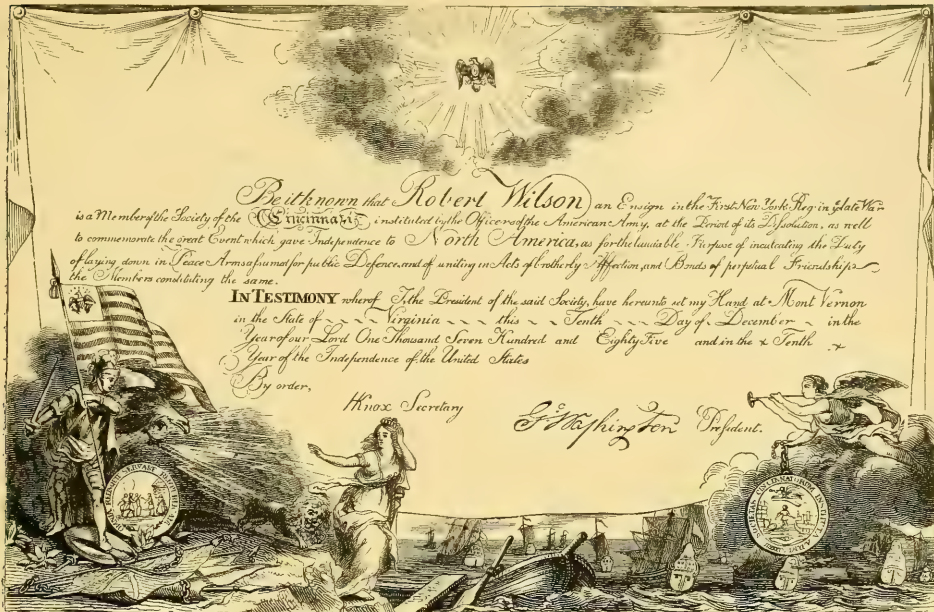 Be it known that Robert Wilson, an Ensign in the First New York Reg: in ye late War
is a Member of the Society of the Cincinnati; instituted by the Officers of the American Army, at the Period of its Dissolution, as well
to commemorate the great Event which gave Independence to North America, as for the laudable Purpose of inculcating the Duty
of laying down in Peace Arms assumed for public Defence, and of uniting in Acts of brotherly Affection, and Bonds of perpetual Friendship
the Members constituting the same.
IN TESTIMONY wherof I, the President of the said Society, have hereunto set my Hand at Mont Vernon
in the State of Virginia this Tenth Day of December in the
Year of our Lord One Thousand Seven Hundred and Eighty Five and in the Tenth
Year of the Independence of the United States
By order,
HKnox Secretary
Go Washington President.